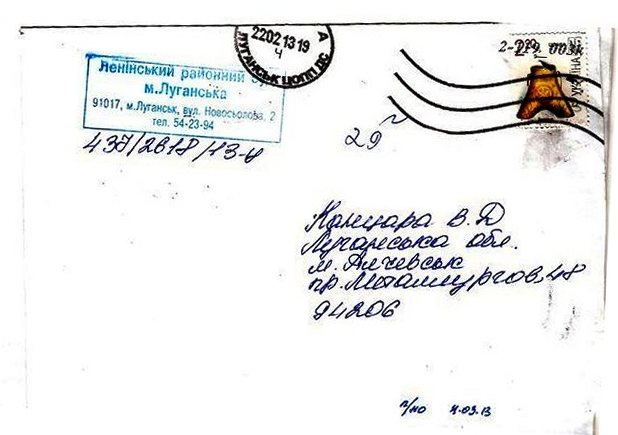 2202 13 19
Ч
А
ЛУГАНСЬК ЦОПП ДС
Ленінський районний
м.Луганська
91017, м.Луганськ, вул. Новосьолова, 2
тел. 54-23-94
437/2618/13-ц
29 г
УКРАЇНА
Канцара В.Д
Луганська обл.
м. Алчевськ
пр. Металлургов, 48
94206
п/ю 4.03.13